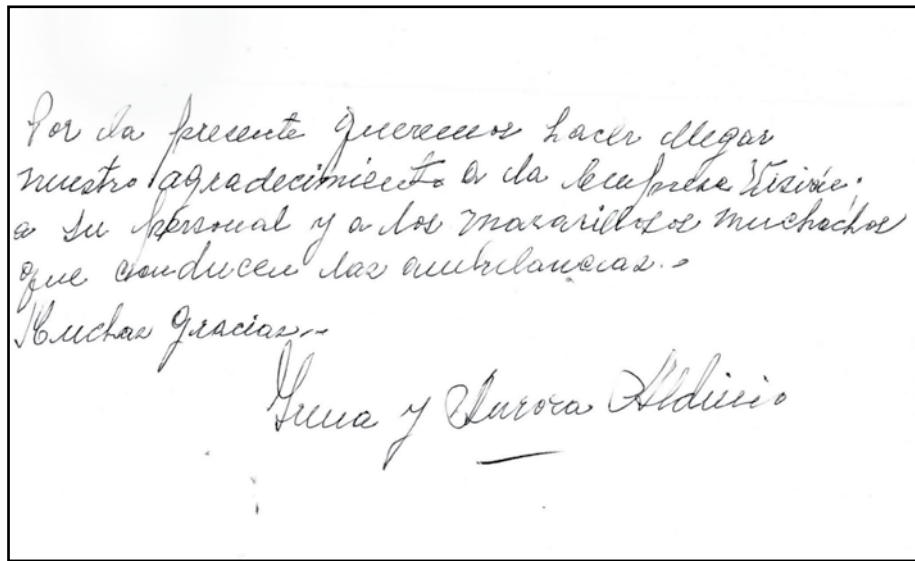 Por la presente queremos hacer llegar
nuestro agradecimiento a la Empresa
a su personal y a los maravillosos muchachos
que conducen las ambulancias..
Muchas gracias...
y Aurora